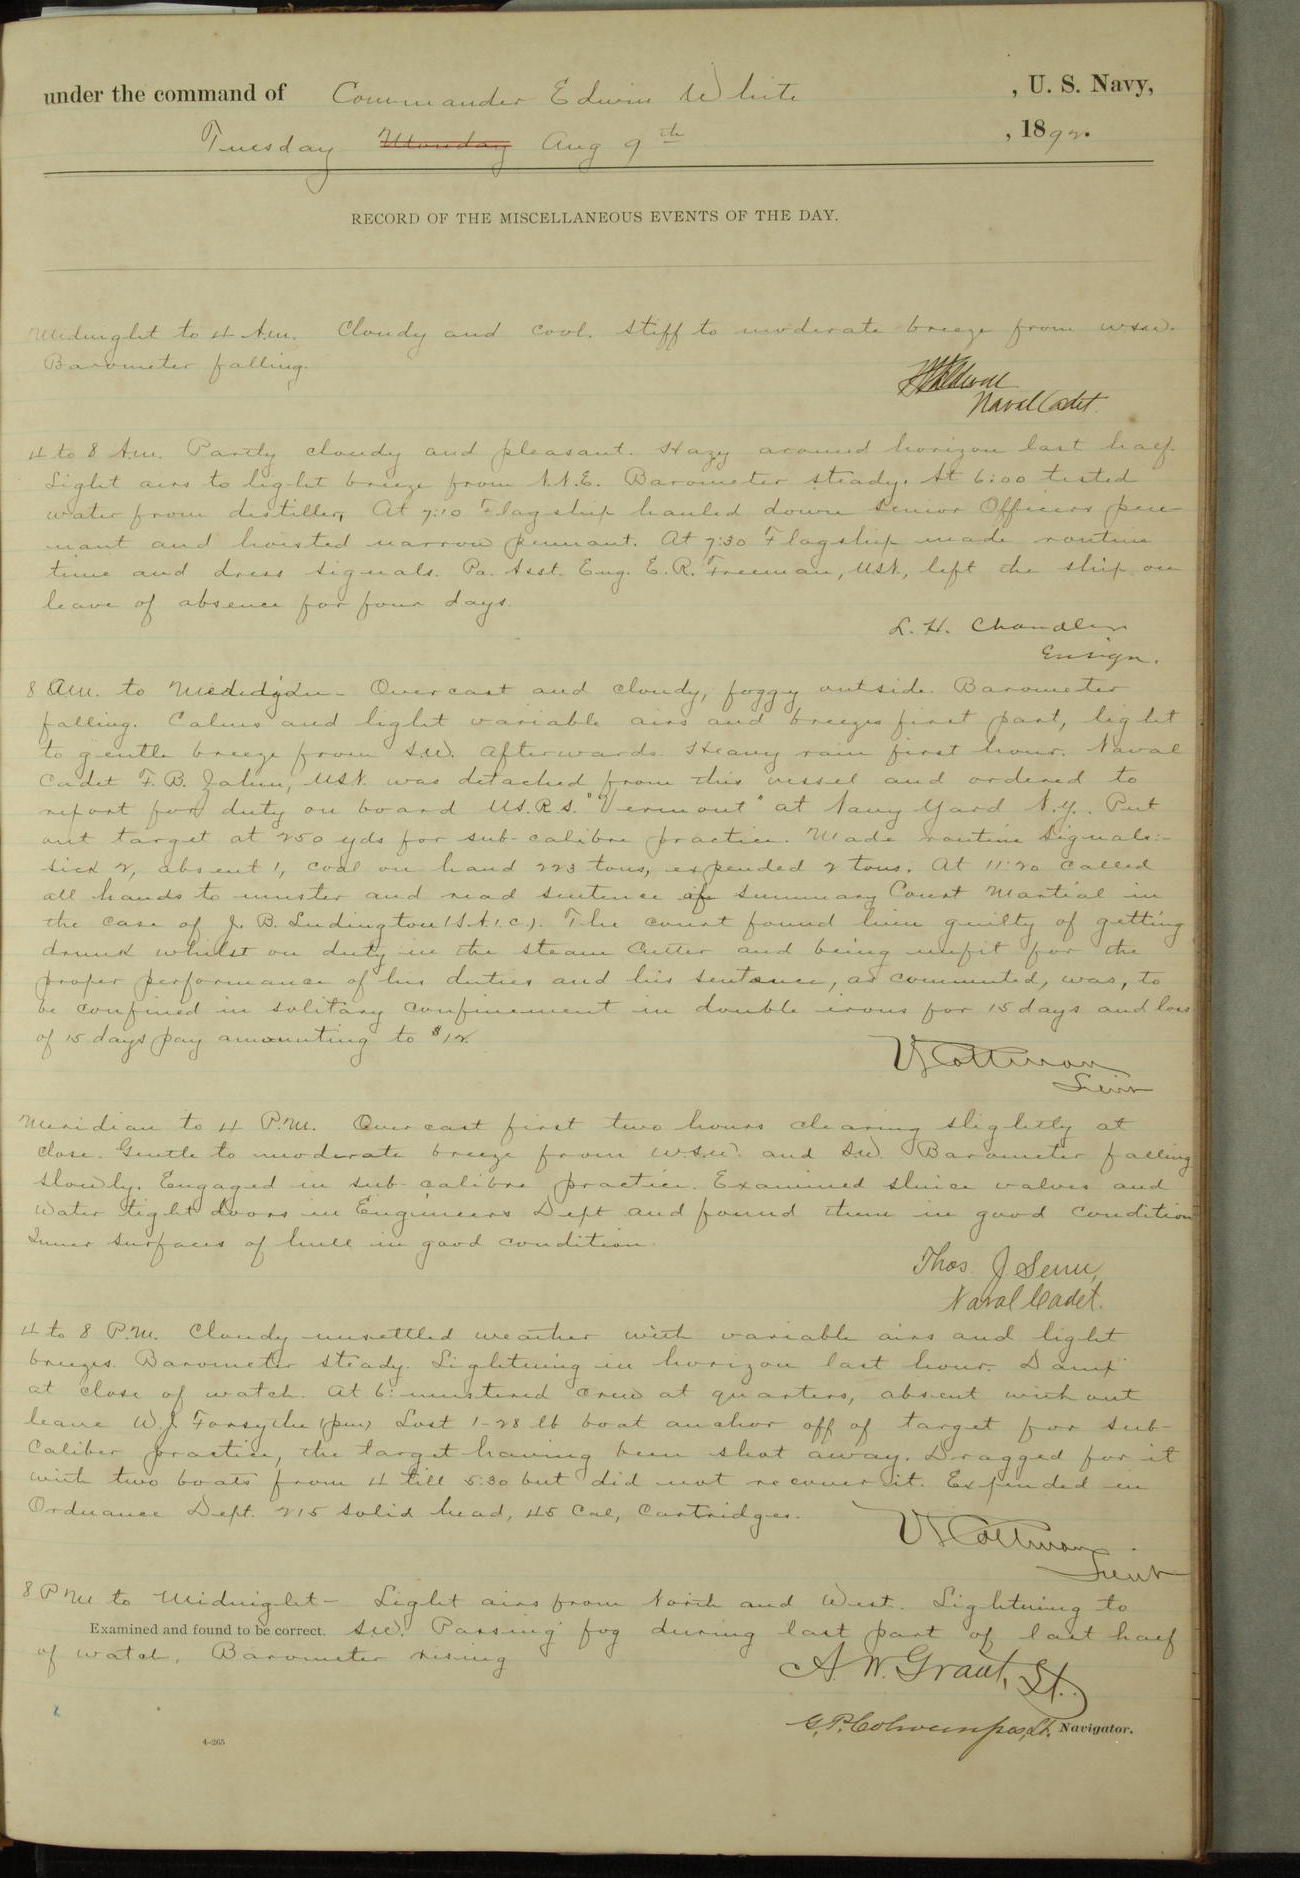 under the command of Commander Edwin White , U. S. Navy,
Tuesday Monday Aug 9th , 1892.
RECORD OF THE MISCELLANEOUS EVENTS OF THE DAY.
Midnight to 4 A.M. Cloudy and cool. Stiff to moderate breeze from WSW.
Barometer falling.
Naval Cadet.
4 to 8 A.M. Partly cloudy and pleasant. Hazy around horizon last half.
Light airs to light breeze from N.N.E. Barometer steady. At 6:00 tested
water from distiller, At 7:10 Flagship hauled down Senior Officers pen-
nant and hoisted narrow pennant. At 7:30 Flagship made routine
time and dress signals. Pa. Asst. Eng. E. R. Freeman, USN, left the ship on
leave of absence for four days.
L. H. Chandler
Ensign.
8 AM. to - Overcast and cloudy, foggy outside. Barometer
falling. Calms and light variable airs and breezes first part, light
to gentle breeze from S.W. afterwards. Heavy rain first hour. Naval
Cadet F. B. Zahm, USN. was detached from this vessel and ordered to
report for duty on board U.S.R.S. "Vermont" at Navy Yard N.Y. Put
out target at 250 yds for sub-calibre practice. Made routine signals:-
sick 2, absent 1, coal on hand 223 tons, expended 2 tons. At 11:20 called
all hands to muster and read sentence of Summary Court Martial in
the case of J. B. Ludington (S.A.1.C.). The court found him guilty of getting
drunk whilst on duty in the steam Cutter and being unfit for the
proper performance of his duties and his sentence, as commuted, was, to
be confined in solitary confinement in double irons for 15 days and loss
of 15 days pay amounting to $12
V.S. Cottman
Lieut
Meridian to 4 P.M. Overcast first two hours clearing slightly at
close. Gentle to moderate breeze from W.S.W. and S.W. Barometer falling
slowly. Engaged in sub-calibre practice. Examined sluice valves and
Water tight doors in Engineers Dept and found them in good condition
Inner surfaces of hull in good condition.
Thos. J Senn,
Naval Cadet.
4 to 8 P.M. Cloudy unsettled weather with variable airs and light
breezes. Barometer steady. Lightning in horizon last hour. Damp
at close of watch. At 6: mustered crew at quarters, absent without
leave W. J. Forsythe Lost 1-28 lb boat anchor off of target for sub-
Caliber practice, the target having been shot away. Dragged for it
with two boats from 4 till 5:30 but did not recover it. Expended in
Ordnance Dept. 215 solid head, 45 Cal, Cartridges.
V.S. Cottman
Lieut
8 P M to Midnight - Light airs from North and West. Lightning to
Examined and found to be correct. SW. Passing fog during last part of last half
of watch, Barometer rising
A. W. Grant, Lt.
G. P. Colvocoresses, Lt. Navigator.
4-265